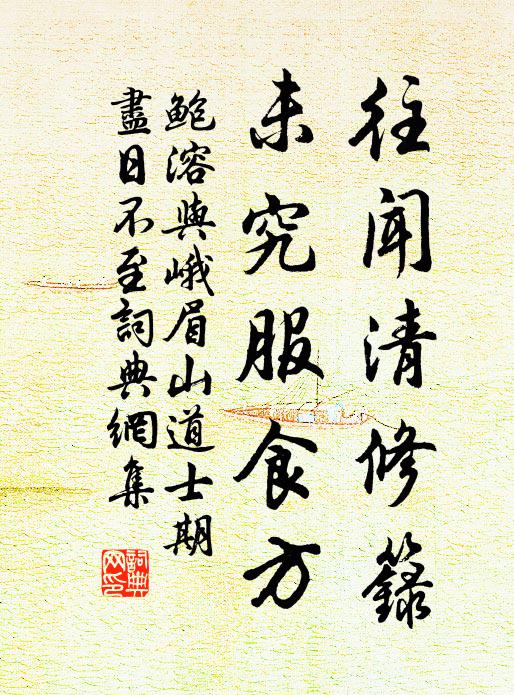 往聞清修籙
未究服食方
鮑溶與峨眉山道士期
盡日不至詞典網集
詞典
网印